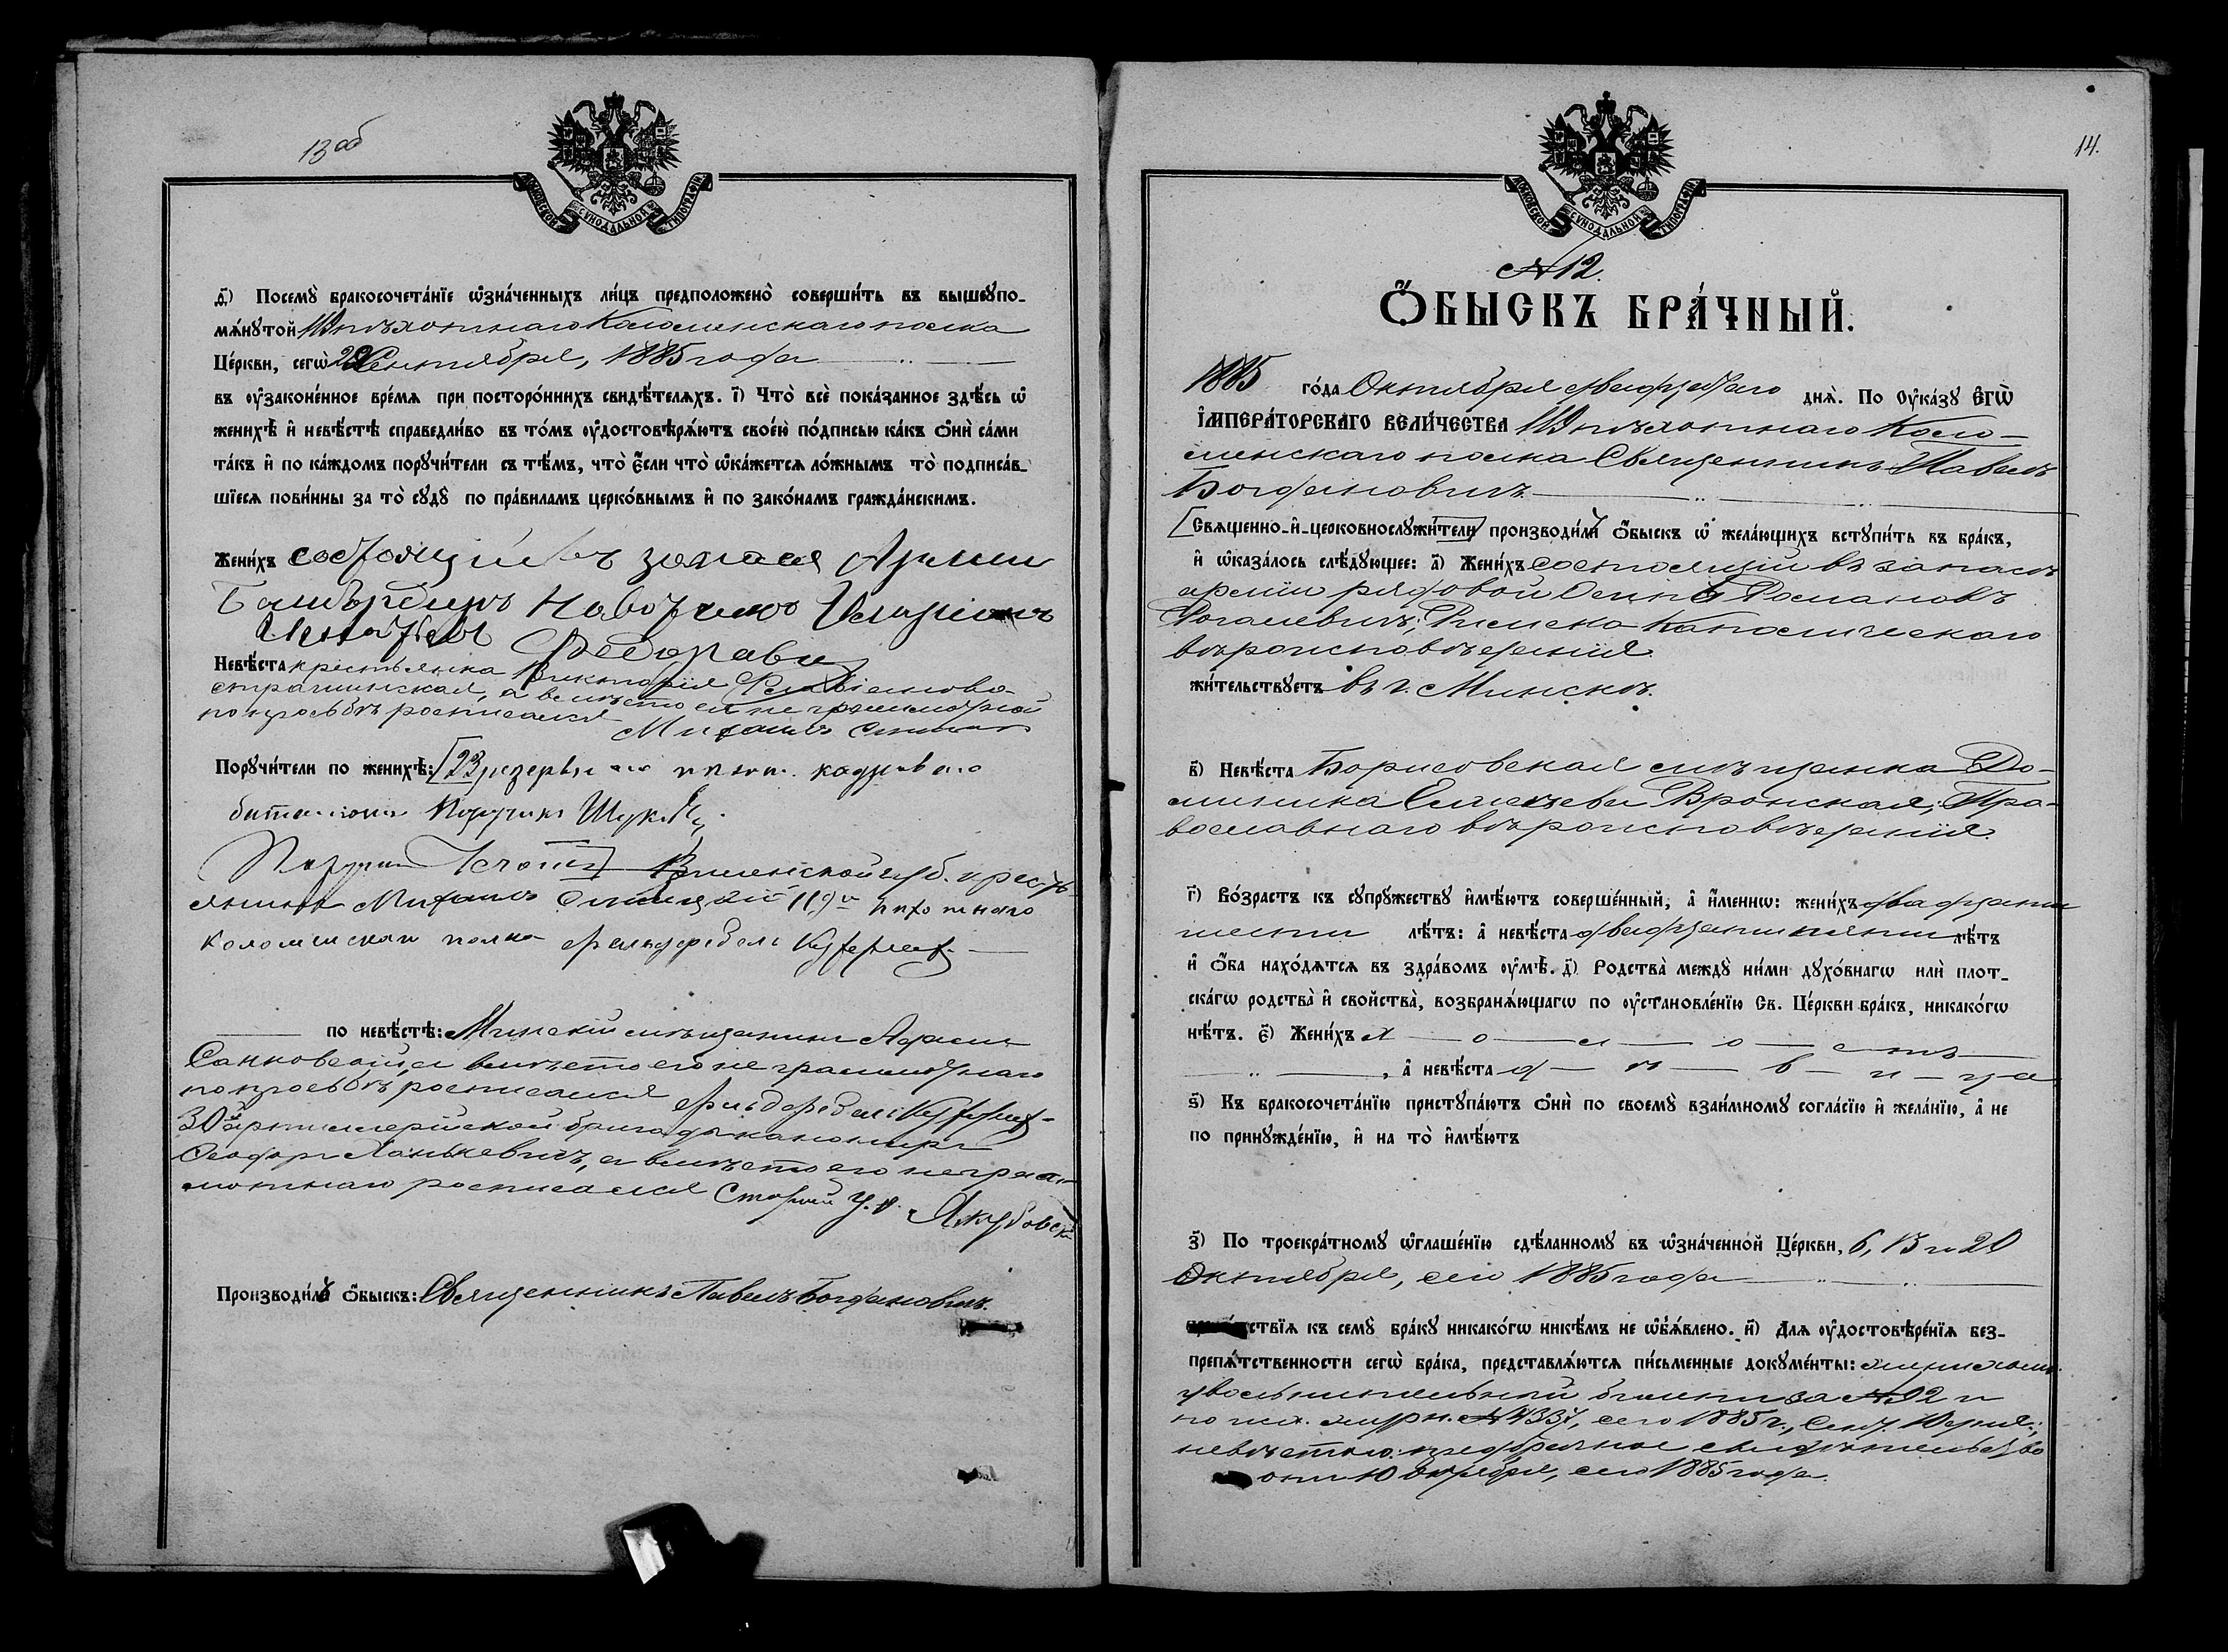 13 об
МОСКОВСКОЙ СѴНОДАЛЬНОЙ ТИПОГРАФІИ
ѳ҃) Посемꙋ̀ бракосочета́нїе ѡ҆зна́ченныхъ ли́цъ предположено̀ соверши́ть въ вышеꙋпо-
мѧ́нꙋтой 119 пѣхотнаго Коломенскаго полка
Це́ркви, сегѡ̀ Сентября, 1885 года
въ ᲂу҆законе́нное вре́мѧ при посторо́ннихъ свидѣ́телѧхъ. і҃) Что̀ всѐ пока́занное здѣ́сь ѡ҆
женихѣ̀ и҆ невѣ́стѣ справедли́во въ то́мъ ᲂу҆достовѣрѧ́ютъ свое́ю по́дписью ка́къ ѻ҆нѝ са́ми
та́къ и҆ по ка́ждомъ порꙋчи́тели съ тѣ́мъ, что̀ є҆́сли что̀ ѡ҆ка́жетсѧ ло́жнымъ то̀ подписа́в-
шїесѧ пови́нны за то̀ сꙋдꙋ̀ по пра́виламъ церко́внымъ и҆ по зако́намъ гражда́нскимъ.
Жени́хъ состоящій въ запасѣ Арміи
Невѣ́ста крестьянка Викторія
а вмѣсто ея не грамотной
по прозьбѣ росписался Михаилъ
Порꙋчи́тели по женихѣ̀: 23 резервн. пѣхот. кадроваго
баталіона Поручикъ
Поручикъ Виленской губ. кресть-
янинъ Михаилъ 119го пѣхотнаго
Коломенскаго полка фельдфебель
по невѣ́стѣ: Минскій мѣщанинъ
Санковскій, а вмѣсто его не грамотнаго
по прозьбѣ росписался фельдфебель
30й артиллерійской бригады канониръ
Ѳеодоръ Ханькевичъ, а вмѣсто его негра-
мотнаго росписался Старшій У. О. Якубовскій
Производи́лъ ѻ҆́быскъ: Священникъ Павелъ Богдановичъ.
14.
МОСКОВСКОЙ СѴНОДАЛЬНОЙ ТИПОГРАФІИ
№ 12.
Ѻ҆́БЫСКЪ БРА́ЧНЫЙ.
1885 го́да Октября двадцатаго днѧ̀. По Оу҆ка́зꙋ Є҆гѡ̀
І҆мпера́торскаго вели́чества 119 пѣхотнаго Коло-
менскаго полка Священникъ Павелъ
Богдановичъ
Свѧщенно-и҆-церковнослꙋжи́тели производи́ли ѻ҆́быскъ ѡ҆ жела́ющихъ встꙋпи́ть въ бра́къ,
и҆ ѡ҆каза́лось слѣ́дꙋющее: а҃) Жени́хъ состоящій въ запасѣ
арміи рядовой Осипъ Романовъ
Рогалевичъ, Римско Католическаго
вѣроисповѣданія
жи́тельствꙋетъ въ г. Минскѣ.
в҃) Невѣ́ста Борисовская мѣщанка До-
миника Вронская, Пра-
вославнаго вѣроисповѣданія.
г҃) Во́зрастъ къ сꙋпрꙋ́жествꙋ и҆мѣ́ютъ соверше́нный, а҆ и҆́меннѡ: жени́хъ двадцати
шести лѣ́тъ: а҆ невѣ́ста двадцати пяти лѣ́тъ
и҆ ѻ҆́ба нахо́дѧтсѧ въ здра́вомъ ᲂу҆мѣ̀. д҃) Родства̀ междꙋ̀ ни́ми дꙋхо́внагѡ илѝ плот-
ска́гѡ родства̀ и҆ сво́йства, возбранѧ́ющагѡ по ᲂу҆становле́нїю Св. Це́ркви бра́къ, никако́гѡ
нѣ́тъ. є҃) Жени́хъ х — о — л — о — стъ
, а҆ невѣ́ста д — ѣ — в — и — ца
ѕ҃) Къ бракосочета́нїю приступа́ютъ ѻ҆нѝ по своемꙋ̀ взаи́мномꙋ согла́сїю и҆ жела́нїю, а҆ не
по принꙋжде́нїю, и҆ на то̀ и҆мѣ́ютъ
з҃) По троекра́тномꙋ ѡ҆глаше́нїю сдѣ́ланномꙋ въ ѡ҆зна́ченной Це́ркви, 6, 13 и 20
Октября, сего 1885 года
препѧ́тствїѧ къ семꙋ̀ бра́кꙋ никако́гѡ никѣ́мъ не ѡ҆б̾ѧ́влено. и҃) Длѧ ᲂу҆достовѣре́нїѧ без-
препѧ́тственности сегѡ̀ бра́ка, представлѧ́ютсѧ пи́сьменные докꙋме́нты: женихомъ
увольнительный билетъ за № 92 и
журн. № 4337, сего 1885 г.,
невѣстою: предбрачное свидѣтельство
отъ 10 Октября, сего 1885 года.